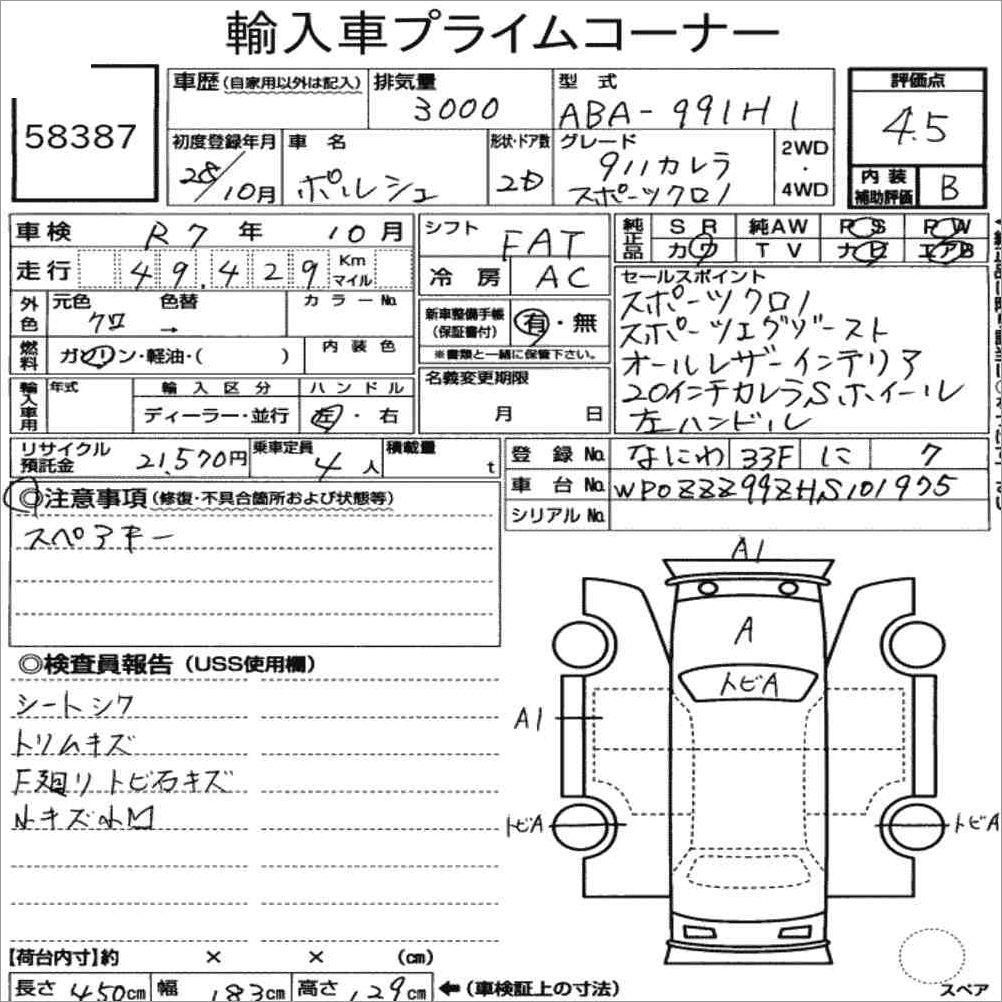 輸入車プライムコーナー
58387
車歴(自家用以外は記入) 排気量 3000 型式 ABA-991H1 評価点 4.5
初度登録年月 28/10月 車名 ポルシェ 形状・ドア数 2D グレード 911カレラ スポーツクロノ 2WD・4WD 内装補助評価 B
車検 R7年 10月
走行 49,429 Km マイル
シフト FAT
冷房 AC
純正品 SR 純AW PS PW
カワ TV ナビ エアB
外色 元色 クロ 色替 → カラーNo.
燃料 ガソリン・軽油・( ) 内装色
新車整備手帳(保証書付) 有・無
※書類と一緒に保管下さい。
輸入車用 年式 輸入区分 ディーラー・並行 ハンドル 左・右
名義変更期限 月 日
セールスポイント
スポーツクロノ
スポーツエグゾースト
オールレザーインテリア
20インチカレラSホイール
左ハンドル
リサイクル預託金 21,570円 乗車定員 4人 積載量 t
登録No. なにわ 33F に 7
車台No. WP0ZZZ99ZHS101975
シリアルNo.
◎注意事項(修復・不具合箇所および状態等)
スペアキー
◎検査員報告(USS使用欄)
シートシワ
トリムキズ
F廻リトビ石キズ
小キズ小凹
A1
A
トビA
A1
トビA
トビA
【荷台内寸】約 × × (cm)
長さ 450cm 幅 183cm 高さ 129cm ←(車検証上の寸法)
スペア